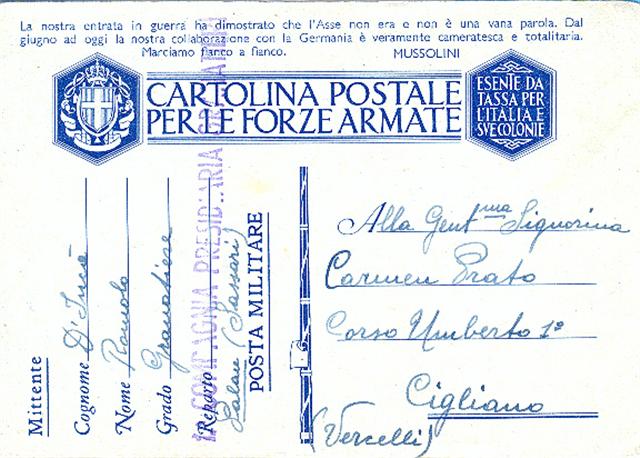 La nostra entrata in guerra ha dimostrato che l'Asse non era e non è una vana parola. Dal
giugno ad oggi la nostra collaborazione con la Germania è veramente cameratesca e totalitaria.
Marciamo fianco a fianco. MUSSOLINI
CARTOLINA POSTALE
PER LE FORZE ARMATE
ESENTE DA
TASSA PER
L'ITALIA E
SVE COLONIE
Mittente
Cognome D'Incà
Nome Romolo
Grado Granatiere
Reparto
COMPAGNIA PRESIDIARIA
Palau (Sassari)
POSTA MILITARE
Alla Gent.ma Signorina
Carmen Prato
Corso Umberto 1°
Cigliano
(Vercelli)